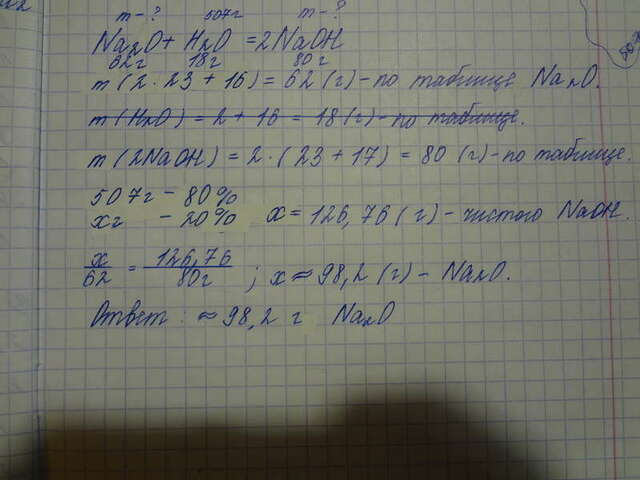 m-? 507г m-?
Na₂O + H₂O = 2NaOH
62г 18г 80г
m(2·23+16) = 62(г) - по таблице Na₂O.
m(H₂O) = 2 + 16 = 18(г) - по таблице.
m(2NaOH) = 2·(23+17) = 80 (г) - по таблице.
507г - 80%
xг - 20% x = 126,76 (г) - чистого NaOH.
x/62 = 126,76/80г ; x ≈ 98,2 (г) - Na₂O.
Ответ: ≈ 98,2 г Na₂O